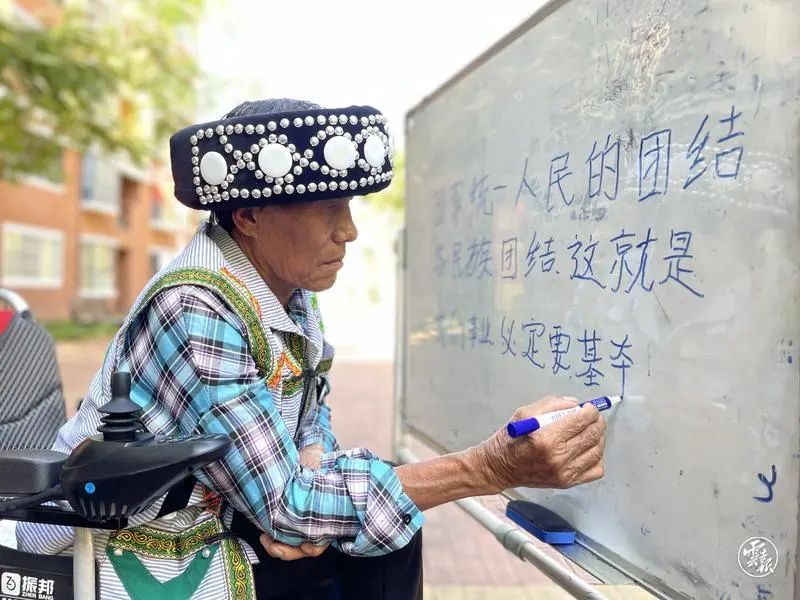 国家统一人民的团结
各民族团结这就是
我们事业必定要基本
振邦
ZHEN BANG